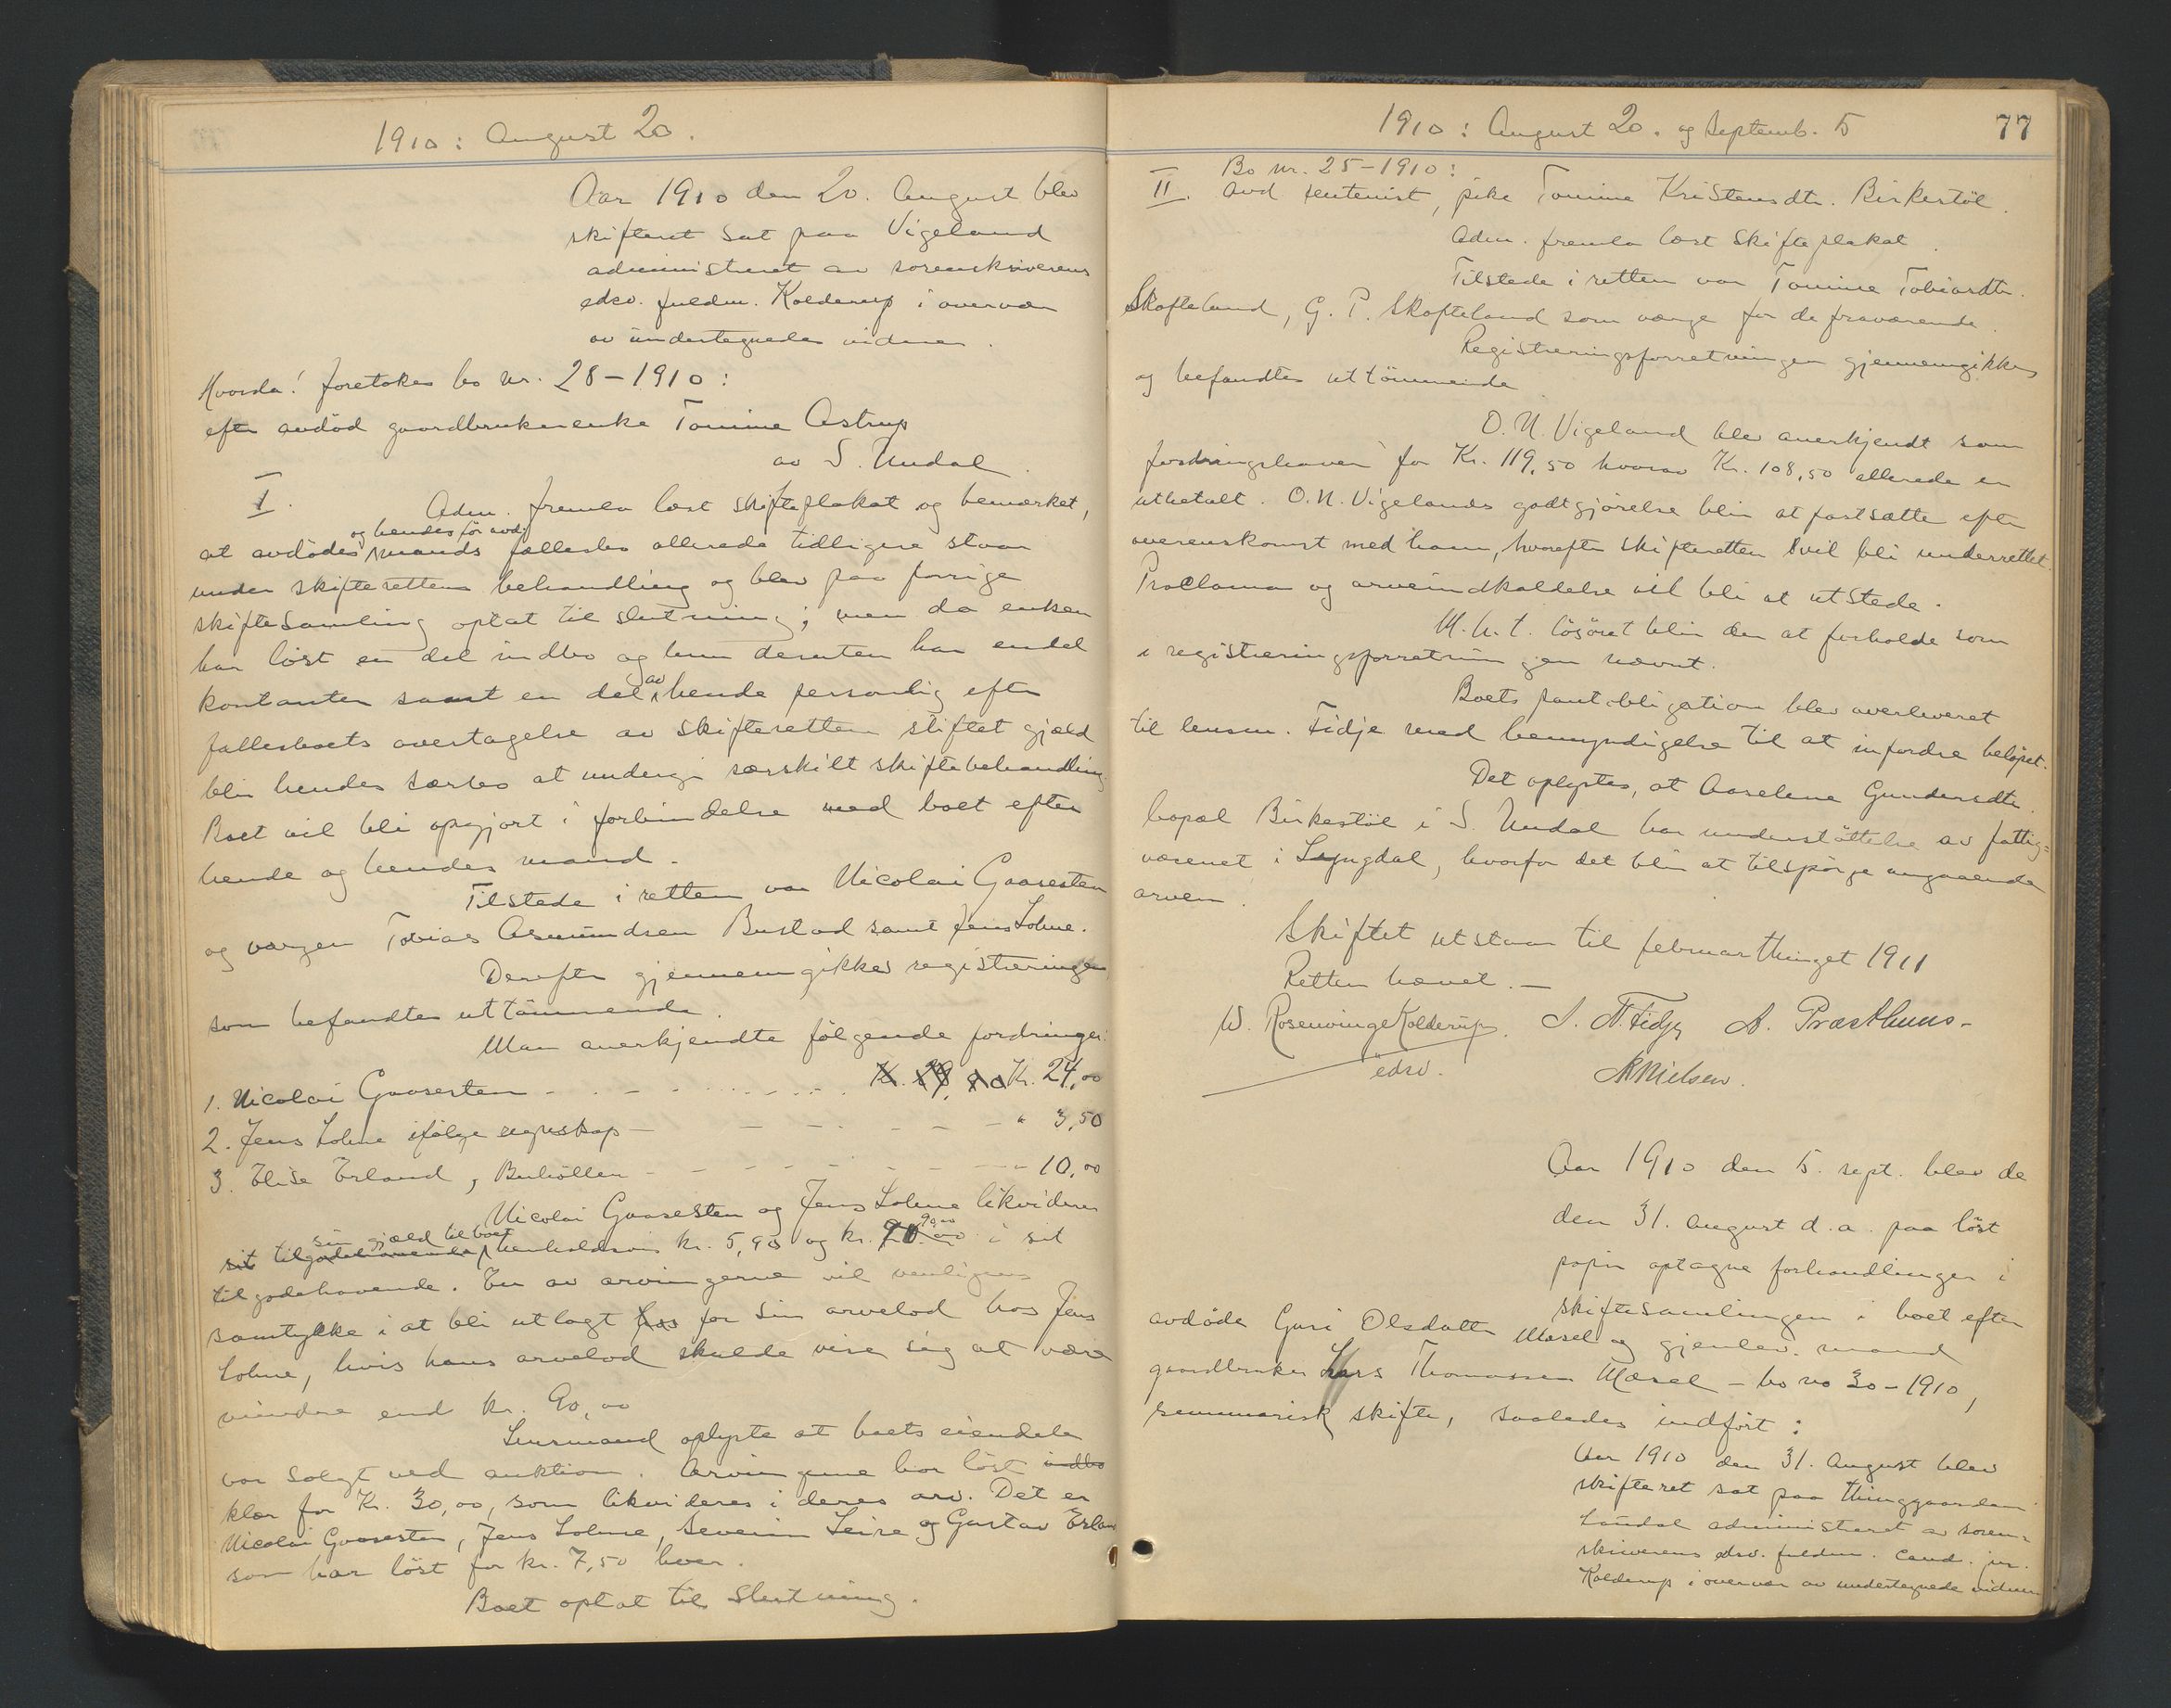 1910: August 20.
Aar 1910 den 20. August blev
skifteret sat paa Vigeland
administreret av sorenskriverens
edsv. fuldm. Kolderup i overvær
av undertegnede vidner.
Hvorda! foretokes bo nr. 28-1910:
efter avdød gaardbrukerenke Tomine Astrup
av S. Undal.
I. Adm. fremla læst skifteplakat og bemerket,
at avdødes og hendes før avd. mands fællesbo allerede tidligere staar
under skifterettens behandling og blev paa forrige
skiftesamling optat til slutning; men da enken
har løst en del indbo og hun desuten har endel
kontanter samt en del av hende personlig efter
fællesboets overtagelse av skifteretten stiftet gjæld
blir hendes særbo at undergi særskilt skiftebehandling.
Boet vil bli opgjort i forbindelse med boet efter
hende og hendes mand.
Tilstede i retten var Nicolai Gaaresten
og vergen Tobias Asmundsen Bustad samt Jens Lohne.
Derefter gjennemgikkes registreringen
som befandtes uttømmende.
Man anerkjendte følgende fordringer:
1. Nicolai Gaaresten - - - - - Kr. 24,00
2. Jens Lohne ifølge regnskap - - - - - - " 3,50
3. Elise Erland, Buhøllen - - - - - - - - 10,00
Nicolai Gaaresten og Jens Lohne likviderer
sit tilgodehavende sin gjæld til boet henholdsvis kr. 5,90 og kr. 90,00 i sit
tilgodehavende. En av arvingerne vil venligen
samtykke i at bli utlagt hos for sin arvelod hos Jens
Lohne, hvis hans arvelod skulde vise sig at være
mindre end kr. 90,00
Lensmand oplyste at boets eiendele
var solgt ved auktion. Arvingerne har løst indbo
klær for Kr. 30,00, som likvideres i deres arv. Det er
Nicolai Gaaresten, Jens Lohne, Severin Leire og Gustav Erland
som har løst for kr. 7,50 hver.
Boet optat til slutning.
1910: August 20. og Septemb. 5
77
Bo nr. 25-1910:
II. avd rentenist, pike Tomine Kristensdtr. Birkestøl.
Adm. fremla læst skifteplakat.
Tilstede i retten var Tomine Tobiasdtr.
Skofteland, G. P. Skofteland som verge for de fraværende.
Registreringsforretningen gjennemgikkes
og befandtes uttømmende
O. N. Vigeland blev anerkjendt som
fordringshaver for Kr. 119,50 hvorav Kr. 108,50 allerede er
utbetalt. O. N. Vigelands godtgjørelse blir at fastsætte efter
overenskomst med ham, hvorefter skifteretten vil bli underrettet.
Proclama og arveindkaldelse vil bli at utstede.
M. h. t. løsøret blir den at forholde som
i registreringsforretningen nævnt.
Boets pantobligation blev overleveret
til lensm. Fidje med bemyndigelse til at infordre beløpet.
Det oplystes, at Aaselene Gundersdtr.
bopæl Birkestøl i S. Undal har understøttelse av fattig=
væsenet i Lyngdal, hvorfor det blir at tilspørge angaaende
arven.
Skiftet utstaar til februarthinget 1911
Retten hævet.—
W. Rosenvinge Kolderup. S. N. Fidje A. Præsthuus-
edsv. NNielsen.
Aar 1910 den 5. sept. blev de
den 31. august d. a. paa løst
papir optagne forhandlinger i
skiftesamlingen i boet efter
avdøde Guri Olsdatter Mæsel og gjenlev. mand
gaardbruker Lars Thomassen Mæsel - bo no 30-1910,
summarisk skifte, saaledes indført:
Aar 1910 den 31. August blev
skifteret sat paa thinggaarden
Laudal administreret av soren=
skriverens edsv. fuldm. cand. jur.
Kolderup i overvær av undertegnede vidner